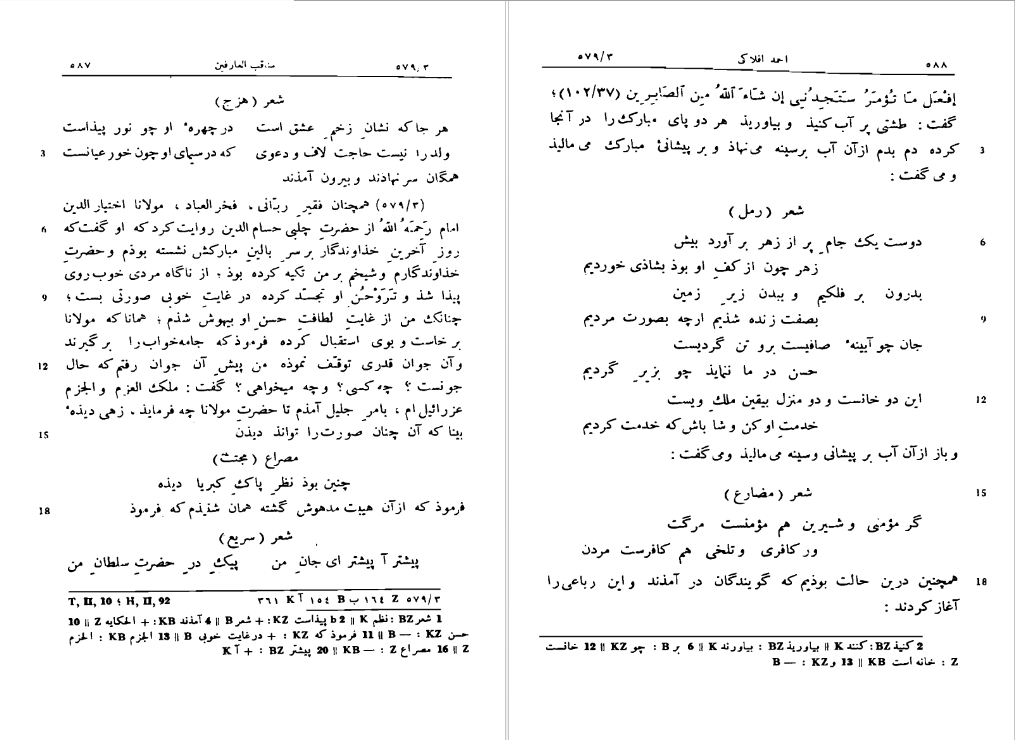 ٥٧٩/٣ مناقب العارفین ٥٨٧
شعر (هزج)
هر جا که نشانِ زخمِ عشق است درچهرهٔ او چو نور پیذاست
ولدرا نیست حاجت لاف ودعوی که درسیمای اوچون خورعیانست 3
همگان سرنهادند وبیرون آمذند
(٥٧٩/٣) همچنان فقیرِ ربّانی، فخرالعباد، مولانا اختیار الدین
امام رَحِمَهُ اللّٰهُ از حضرتِ چلبی حسام الدین روایت کرد که او گفت که 6
روز آخرین خذاوندگار بر سرِ بالینِ مبارکش نشسته بوذم وحضرتِ
خذاوندگارم وشیخم بر من تکیه کرده بوذ؛ از ناگاه مردی خوب روی
پیذا شذ و تَرَوْحُنِ او تجسّد کرده در غایتِ خوبی صورتی بست؛ 9
چنانک من از غایتِ لطافتِ حسنِ او بیهوش شذم؛ همانا که مولانا
برخاست و بوی استقبال کرده فرموذ که جامه‌خواب‌را برگیرند
وآن جوان قدری توقّف نموذه من پیشِ آن جوان رفتم که حال 12
جونست؟ چه کسی؟ وچه میخواهی؟ گفت: ملکُ العزم والجزم
عزرائیل‌ام، بامرِ جلیل آمذم تا حضرتِ مولانا چه فرمایذ، زهی دیذهٔ
بینا که آن چنان صورت‌را توانذ دیذن 15
مصراع (مجتث)
چنین بوذ نظرِ پاکِ کبریا دیذه
فرموذ که ازآن هیبت مدهوش گشته همان شذیذم که فرموذ 18
شعر (سریع)
پیشتر آ پیشتر ای جانِ من پیکِ درِ حضرتِ سلطانِ من
٥٧٩/٣ Z ١٦٤ ب B ١٥٤ آ K ٣٦١ T, II, 10 ؛ H, II, 92
1 شعر BZ: نظم K || 2 b پیذاست KZ: + شعر B || 4 آمذند KB: + الحکایه Z || 10
حسن KZ: — B || 11 فرموذ که KZ: + درغایت خوبی B || 13 الجزم KB: الحزم
Z || 16 مصراع Z: — KB || 20 پیشتر BZ: + آ K
٥٨٨ احمد افلاکی ٥٧٩/٣
اِفْعَلْ مَا تُؤْمَرُ سَتَجِدُنِی اِن شَاءَ اللّٰهُ مِنَ الصَّابِرِینَ (١٠٢/٣٧)؛
گفت: طشتی پر آب کنیذ وبیاوریذ هر دو پای مبارک‌را در آنجا
کرده دم بدم ازآن آب برسینه می‌نهاذ و بر پیشانیٔ مبارک می‌مالیذ 3
ومی‌گفت:
شعر (رمل)
دوست یک جامِ پر از زهر بر آورد بپیش 6
زهر چون ازکفِ او بوذ بشاذی خوردیم
بدرون بر فلکیم وببدن زیرِ زمین
بصفت زنده شذیم ارچه بصورت مردیم 9
جان چو آیینهٔ صافیست برو تن گردیست
حسن در ما ننمایذ چو بزیرِ گردیم
این دو خانست ودو منزل بیقین ملکِ ویست 12
خدمتِ اوکن وشا باش که خدمت کردیم
و باز ازآن آب بر پیشانی وسینه می‌مالیذ ومی‌گفت:
شعر (مضارع) 15
گر مؤمنی وشیرین هم مؤمنست مرگت
ورکافری وتلخی هم کافرست مردن
همچنین درین حالت بوذیم که گویندگان در آمذند واین رباعی‌را 18
آغاز کردند:
2 کنیذ BZ: کنند K || بیاوریذ BZ: بیاورند K || 6 بر B: چو KZ || 12 خانست
Z: خانه است KB || 13 و KZ: — B